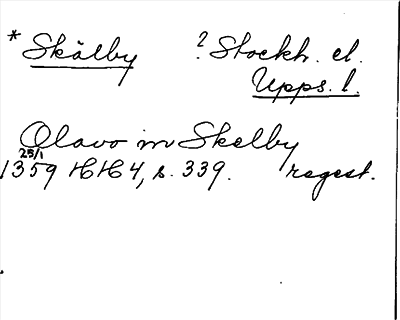 * Skälby ? Stockh. el.
Upps. l.
Olavo in Skelby
25/1
1359 HH 4, s. 339. regest.